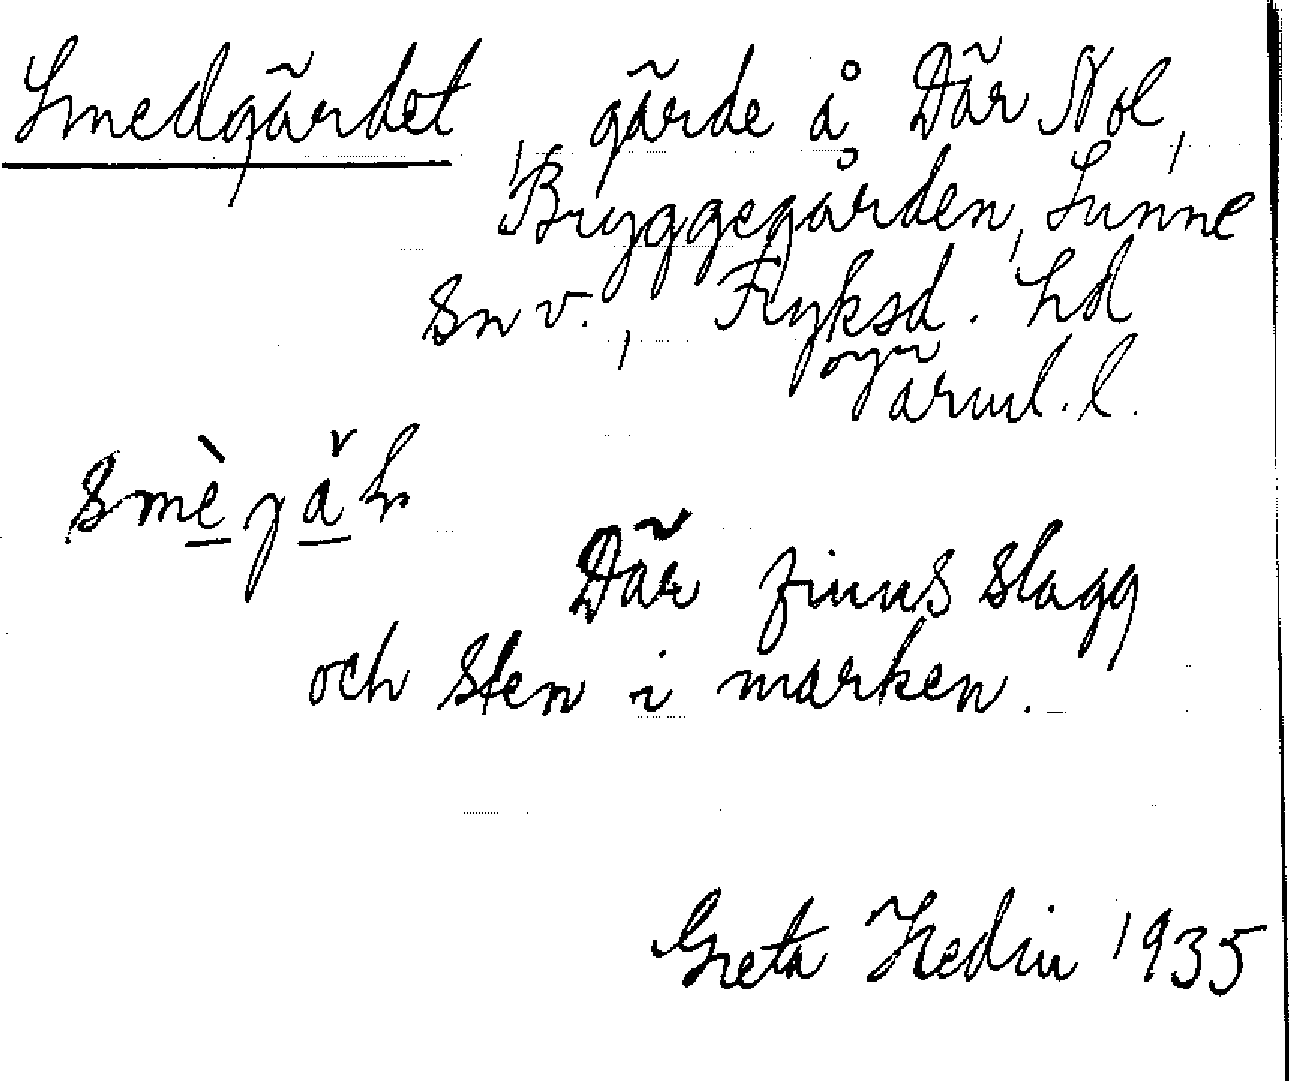 Smedgärdet, gärde å Där Nol,
Bryggegården, Sunne
sn v., Fryksd. hd
Värml. l.
Där finns slagg
och sten i marken.
Greta Hedin 1935